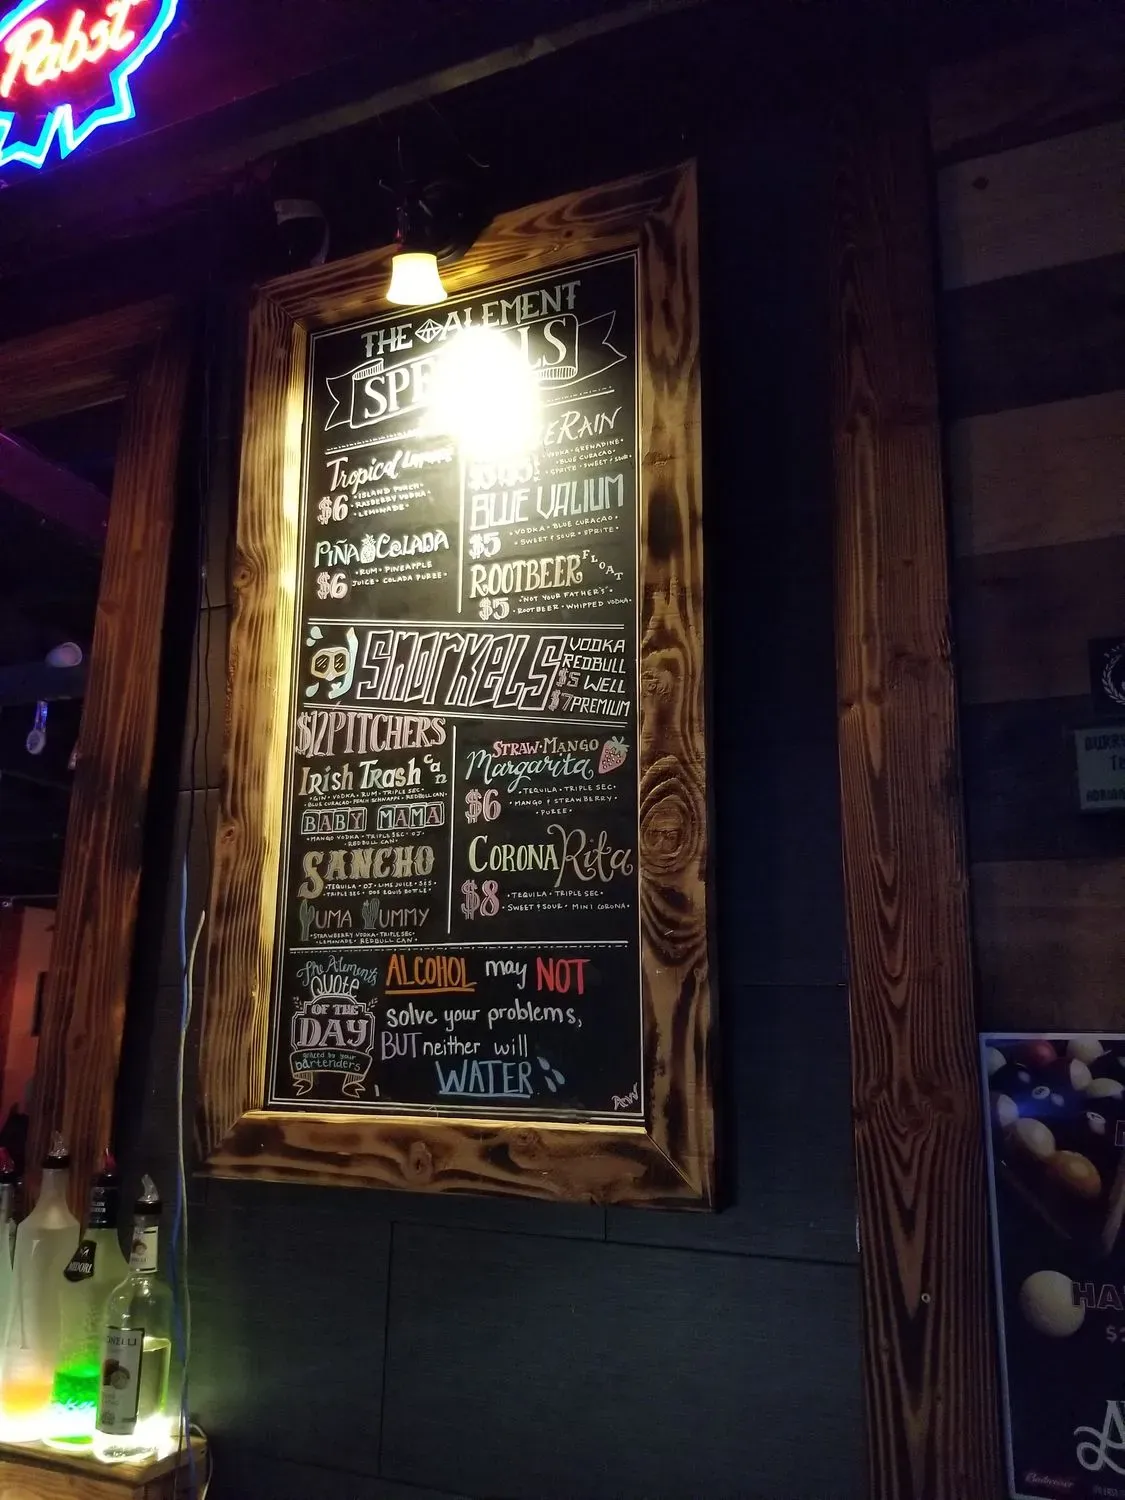 Pabst
THE ALEMENT
Tropical
$6
• ISLAND PUNCH •
• RASBERRY VODKA •
• LEMONADE •
PIÑA COLADA
$6
• RUM • PINEAPPLE
JUICE • COLADA PUREE •
RAIN
VODKA • GRENADINE •
• BLUE CURACAO •
SPRITE • SWEET & SOUR
BLUE VALIUM
$5
• VODKA • BLUE CURACAO •
SWEET & SOUR • SPRITE •
ROOTBEER FLOAT
$5
• "NOT YOUR FATHER'S" •
• ROOTBEER • WHIPPED VODKA •
SNORKELS
VODKA
REDBULL
$5 WELL
$7 PREMIUM
$12 PITCHERS
IRISH TRASH can
• GIN • VODKA • RUM • TRIPLE SEC •
• BLUE CURACAO • PEACH SCHNAPPS • REDBULL CAN •
BABY MAMA
• MANGO VODKA • TRIPLE SEC • OJ •
• REDBULL CAN •
SANCHO
• TEQUILA • OJ • LIME JUICE • S&S •
• TRIPLE SEC • DOS EQUIS BOTTLE •
YUMA YUMMY
• STRAWBERRY VODKA • TRIPLE SEC •
• LEMONADE • REDBULL CAN •
STRAW-MANGO
Margarita
$6
• TEQUILA • TRIPLE SEC •
• MANGO & STRAWBERRY •
• PUREE •
CORONA Rita
$8
• TEQUILA • TRIPLE SEC •
• SWEET & SOUR • MINI CORONA •
The Alements
QUOTE
OF THE
DAY
by your
bartenders
ALCOHOL may NOT
solve your problems,
BUT neither will
WATER
AW
MIDORI
Budweiser